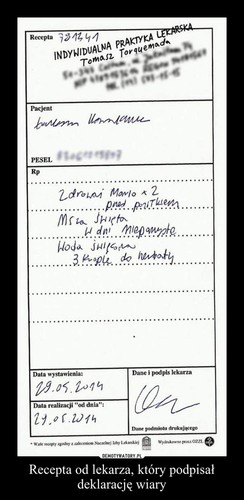 Recepta 321341
INDYWIDUALNA PRAKTYKA LEKARSKA
Tomasz Torquemada
Pacjent
PESEL
Rp
Zdrowaś Mario x 2
przed posiłkiem
Msza Święta
w dni nieparzyste
Woda święcona
3 krople do herbaty
Data wystawienia:
29.05.2014
Data realizacji "od dnia":
29.05.2014
Dane i podpis lekarza
Dane podmiotu drukującego
* Wzór recepty zgodny z zaleceniem Naczelnej Izby Lekarskiej
Wydrukowane przez OZZL
DEMOTYWATORY.PL
Recepta od lekarza, który podpisał
deklarację wiary